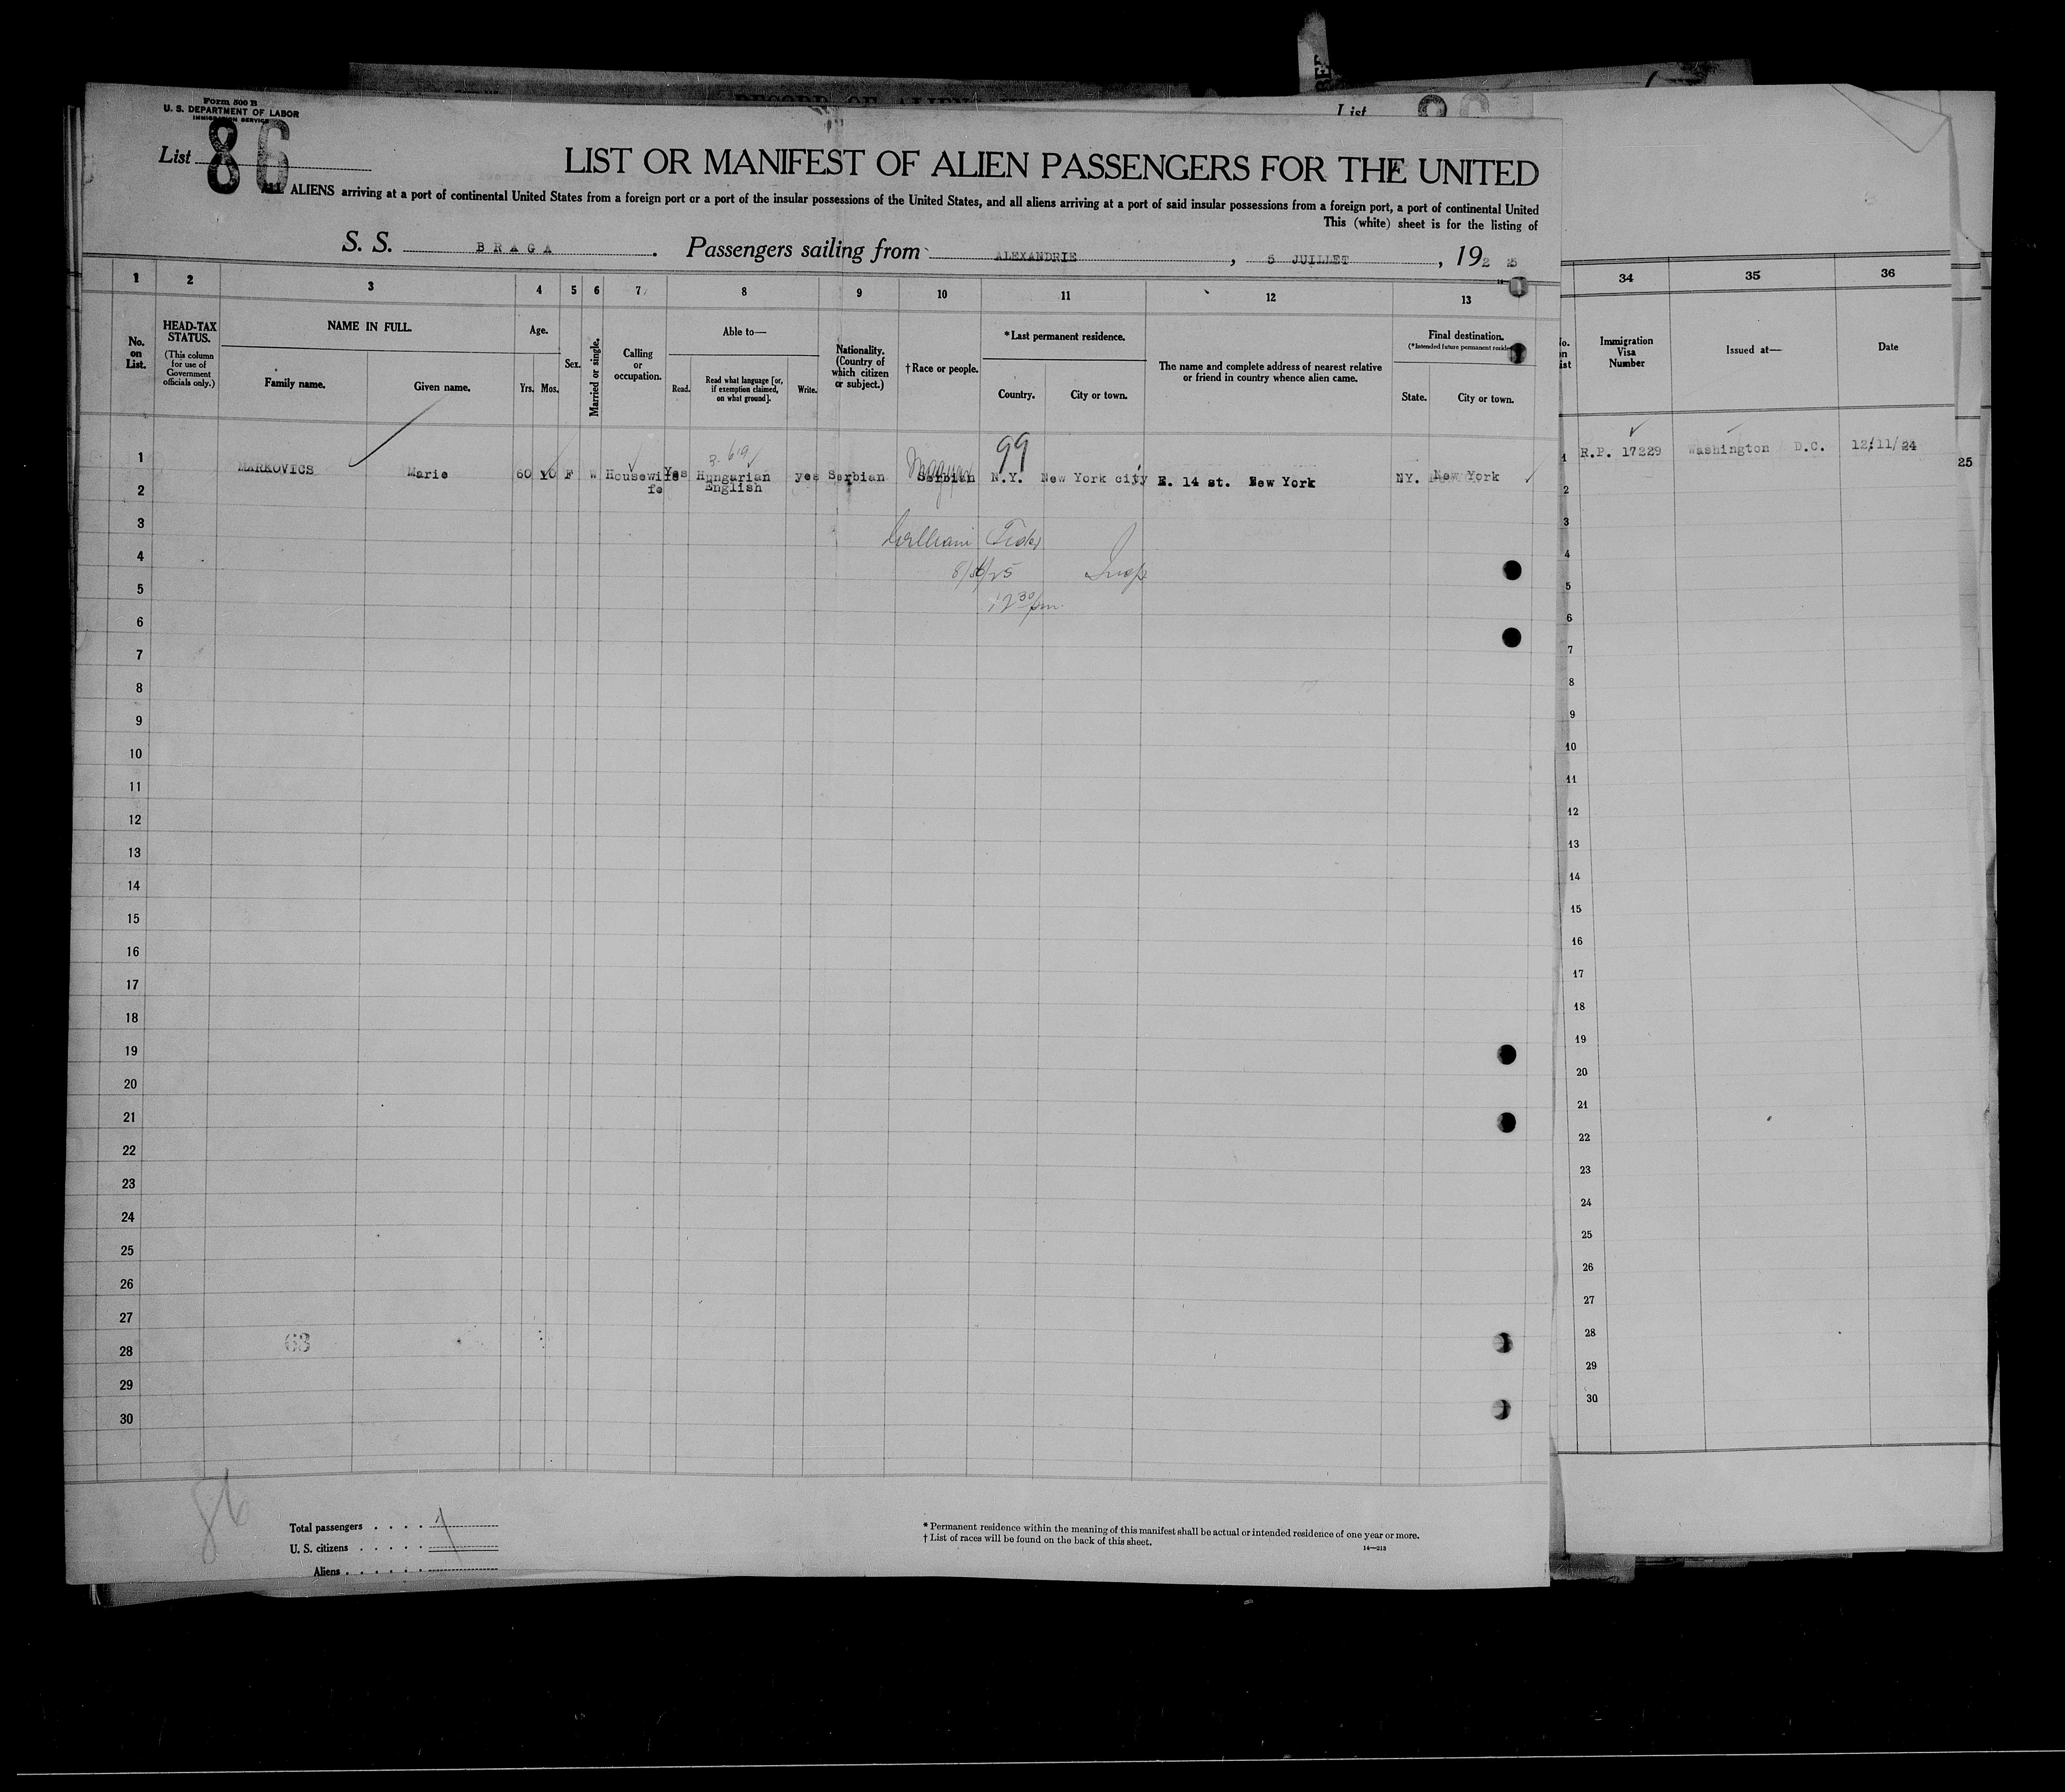 Form 500 B
U. S. DEPARTMENT OF LABOR
IMMIGRATION SERVICE
List 86
List
LIST OR MANIFEST OF ALIEN PASSENGERS FOR THE UNITED
ALIENS arriving at a port of continental United States from a foreign port or a port of the insular possessions of the United States, and all aliens arriving at a port of said insular possessions from a foreign port, a port of continental United
This (white) sheet is for the listing of
S. S. BRAGA. Passengers sailing from ALEXANDRIE, 5 JUILLET, 192 25
1 2 3 4 5 6 7 8 9 10 11 12 13 34 35 36
No. on List.
HEAD-TAX STATUS.
(This column for use of Government officials only.)
NAME IN FULL.
Family name. Given name.
Age.
Yrs. Mos.
Sex.
Married or single.
Calling or occupation.
Able to—
Read. Read what language [or, if exemption claimed, on what ground]. Write.
Nationality. (Country of which citizen or subject.)
†Race or people.
*Last permanent residence.
Country. City or town.
The name and complete address of nearest relative or friend in country whence alien came.
Final destination.
(*Intended future permanent residence)
State. City or town.
Immigration Visa Number
Issued at—
Date
99
1 MARKOVICS Marie 60 10 F W Housewife Yes Hungarian yes Serbian Serbian N.Y. New York city E. 14 st. New York NY. New York
fe English
Magyar
1 R.P. 17229 Washington D.C. 12/11/24
25
William
12 30 pm.
2
3
4
5
6
7
8
9
10
11
12
13
14
15
16
17
18
19
20
21
22
23
24
25
26
27
28
29
30
2
3
4
5
6
7
8
9
10
11
12
13
14
15
16
17
18
19
20
21
22
23
24
25
26
27
28
29
30
63
86
Total passengers . . . . 1
U. S. citizens . . . . .
Aliens . . . . . .
* Permanent residence within the meaning of this manifest shall be actual or intended residence of one year or more.
† List of races will be found on the back of this sheet.
14—213